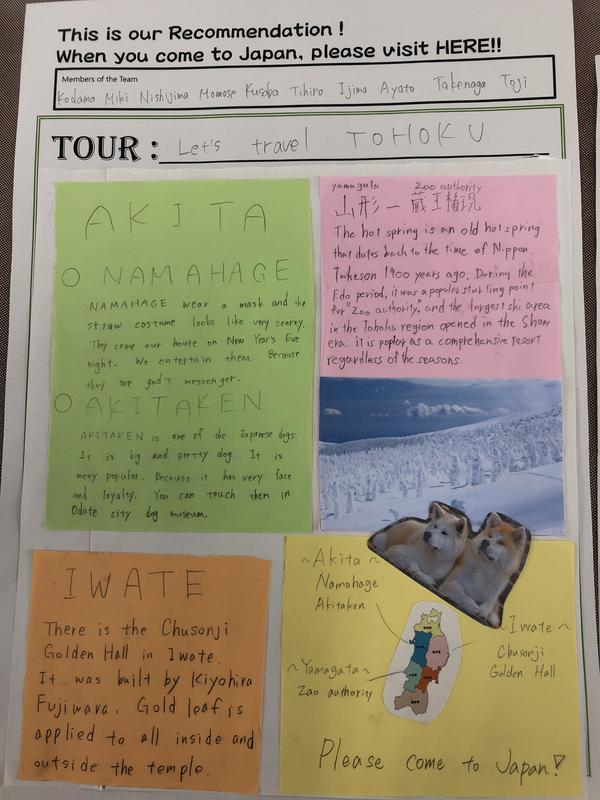 This is our Recommendation !
When you come to Japan, please visit HERE!!
Members of the Team
Kodama Miki Nishijima Momose Kusaba Tihiro Ijima Ayato Takenaga Toji
TOUR : Let's travel TOHOKU
AKITA
○ NAMAHAGE
NAMAHAGE wear a mask and the
straw costume looks like very scarey.
They come our house on New Year's Eve
night. We entertain them. Because
they are god's messenger.
○ AKITAKEN
AKITAKEN is one of the Japanese dogs.
It is big and pretty dog. It is
meny popular. Because it has very face
and loyalty. You can touch them in
Odate city dog museum.
yamagata Zao authority
山形ー蔵王権現
The hot spring is an old hot spring
that dates back to the time of Nippon
Takeson 1900 years ago. During the
Edo period, it was a popular starting point
for "Zao authority," and the largest ski area
in the Tohoku region opened in the Show
era. it is poplar as a comprehensive resort
regardless of the seasons.
IWATE
There is the Chusonji
Golden Hall in Iwate.
It was built by Kiyohira
Fujiwara. Gold leaf is
applied to all inside and
outside the temple.
~Akita~
Namahage
Akitaken
~Iwate~
Chusonji
Golden Hall
~Yamagata~
Zao authority
Please come to Japan!